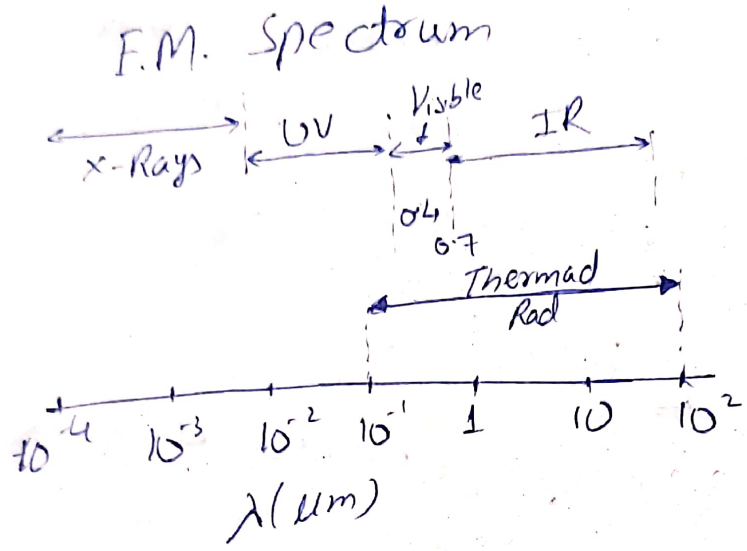 E.M. Spectrum
X-Rays UV Visible IR
0.4
0.7
Thermad
Rad
10⁻⁴ 10⁻³ 10⁻² 10⁻¹ 1 10 10²
λ(μm)